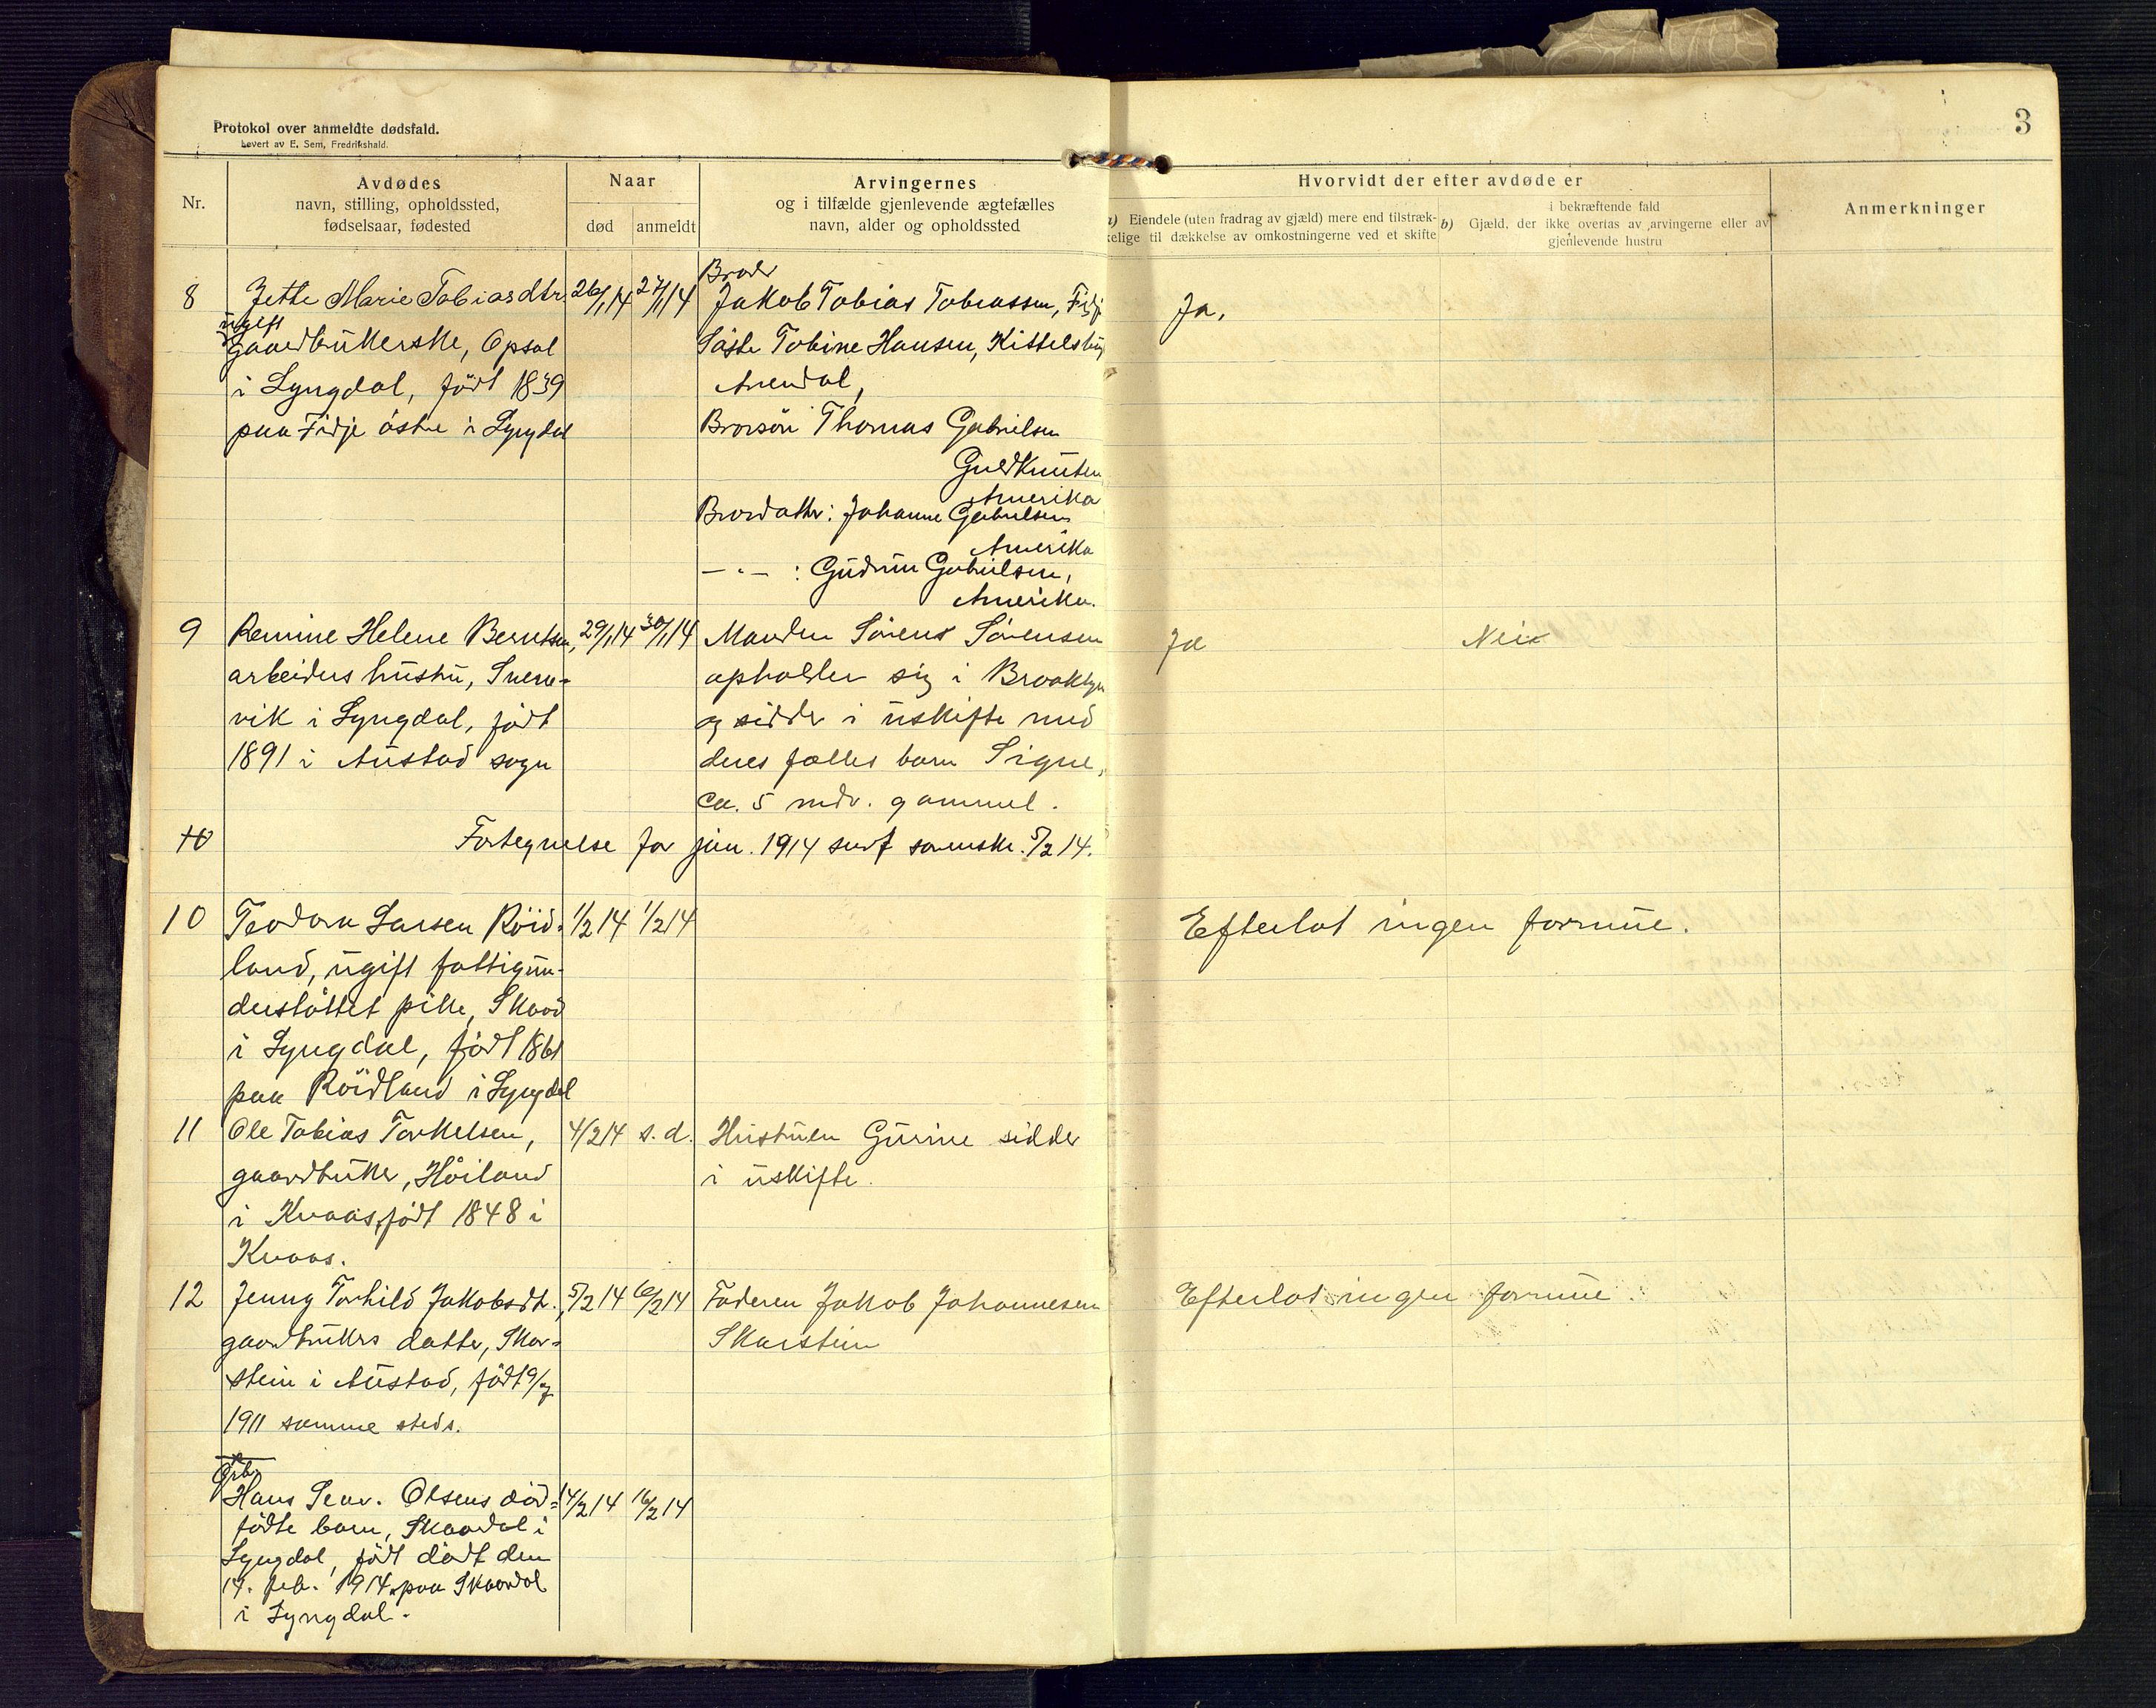 Protokol over anmeldte dødsfald.
Levert av E. Sem, Fredrikshald.
3
Nr.
Avdødes
navn, stilling, opholdssted,
fødselsaar, fødested
Naar
død
anmeldt
Arvingernes
og i tilfælde gjenlevende ægtefælles
navn, alder og opholdssted
Hvorvidt der efter avdøde er
a) Eiendele (uten fradrag av gjæld) mere end tilstræk-
kelige til dækkelse av omkostningerne ved et skifte
i bekræftende fald
b) Gjæld, der ikke overtas av arvingerne eller av
gjenlevende hustru
Anmerkninger
8
Jette Marie Tobiasdtr.
ugift
gaardbrukerske, Opsal
i Lyngdal, født 1839
paa Fidje østre i Lyngdal
26/1 14
27/1 14
Broder
Jakob Tobias Tobiassen, Fidje
Søster Tobine Hansen, Kittelsbu
Arendal,
Brorsøn Thomas Gabrielsen
Amerika
Brordatter: Johanne Gabrielsen
Amerika
— " — : Gudrun Gabrielsen,
Amerika.
Ja,
9
Remine Helene Berntsen,
arbeiders hustru,
vik i Lyngdal, født
1891 i Austad sogn
29/1 14
30/1 14
Manden Sørens Sørensen
opholder sig i Brooklyn
og sidder i uskifte med
deres fælles barn Signe,
ca. 5 mdr. gammel.
Ja
Nei
10
Fortegnelse for jan. 1914 sendt sorenskr. 5/2 14.
10
Teodora Larsen Röid-
land, ugift fattigun-
derstöttet pike, Skaad
i Lyngdal, född 1861
paa Röidland i Lyngdal
1/2 14
1/2 14
Efterlot ingen formue.
11
Ole Tobias Torkelsen,
gaardbruker, Höiland
i Kvaas, född 1848 i
Kvaas.
4/2 14
s. d.
Hustruen Gurine sidder
i uskifte.
12
Jenny Torhild Jakobsdt.,
gaardbrukers datter, Skar-
stein i Austad, född 9/7
1911 samme steds.
5/2 14
6/2 14
Faderen Jakob Johannesen
Skarstein
Efterlot ingen formue.
Grbr.
Hans Sev. Olsens död-
födte barn, Skaardal i
Lyngdal, född dödt den
14. feb. 1914 paa Skaardal
i Lyngdal.
14/2 14
16/2 14